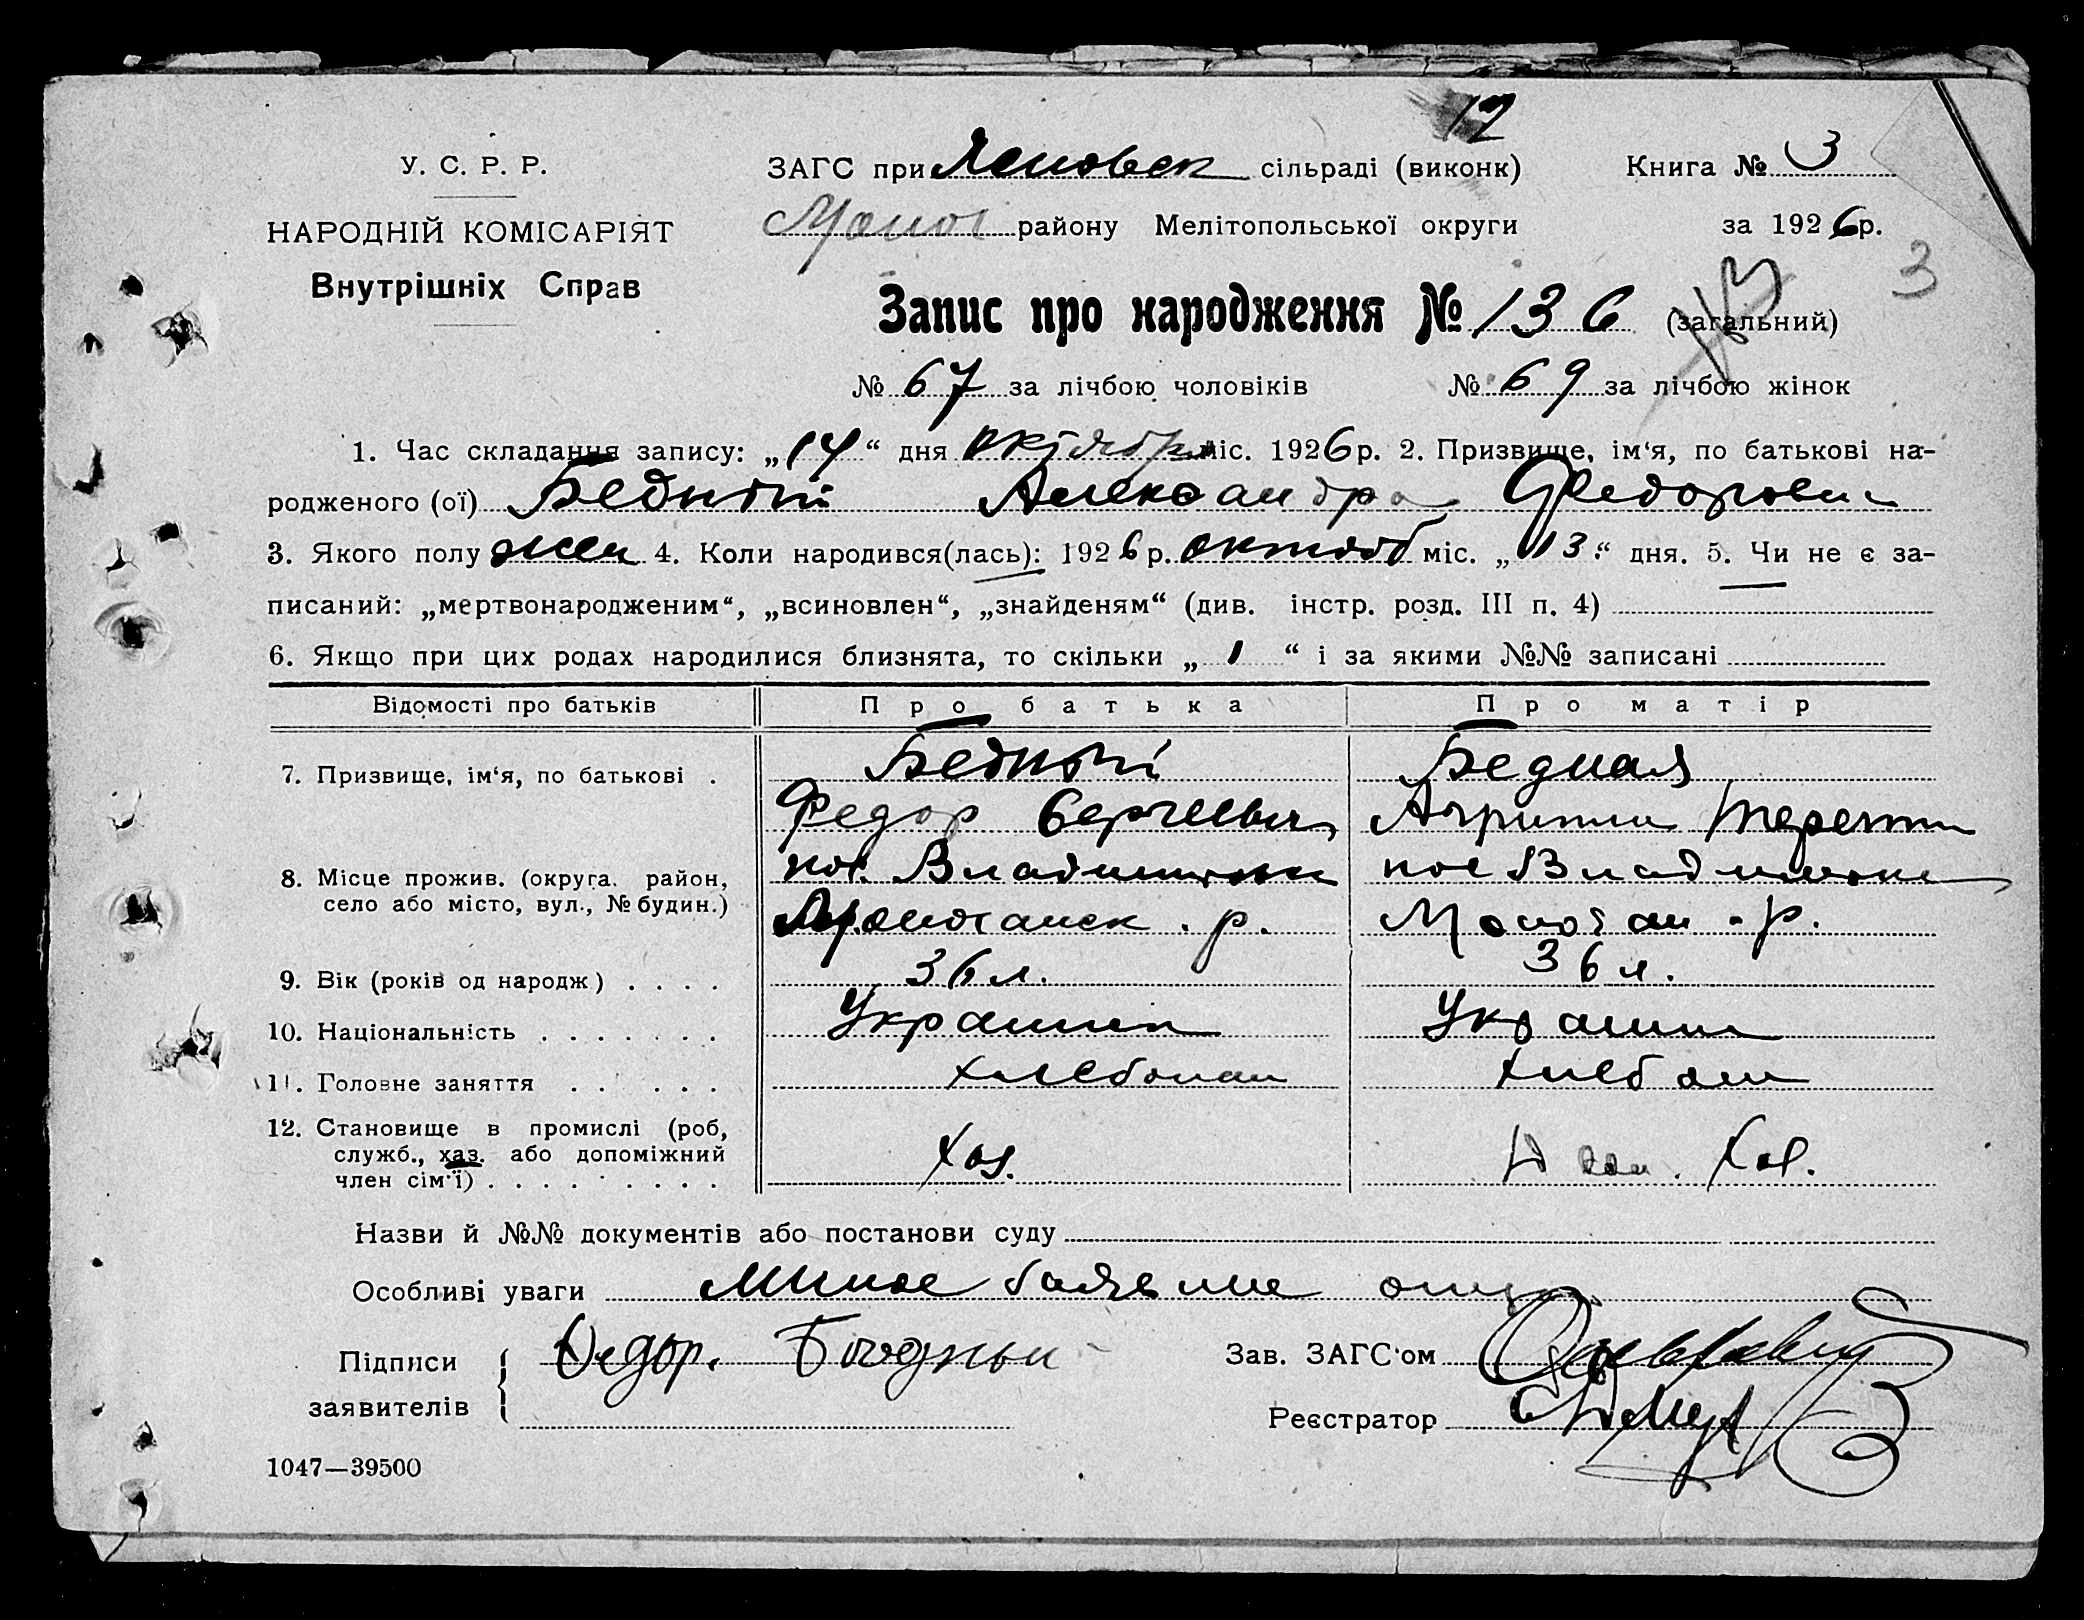 12
У. С. Р. Р.
ЗАГС при сільраді (виконк)
Книга № 3
НАРОДНІЙ КОМІСАРІЯТ
Молоч району Мелітопольської округи
за 1926 р.
Внутрішніх Справ
3
Запис про народження № 136 (загальний)
№ 67 за лічбою чоловіків № 69 за лічбою жінок
1. Час складання запису: „14“ дня октября міс. 1926 р. 2. Призвище, ім‘я, по батькові на-
родженого (ої) Бедный Александра Федоровн
3. Якого полу жен 4. Коли народився(лась): 1926 р. октяб міс. „13“ дня. 5. Чи не є за-
писаний: „мертвонародженим“, „всиновлен“, „знайденям“ (див. інстр. розд. III п. 4)
6. Якщо при цих родах народилися близнята, то скільки „1“ і за якими №№ записані
Відомості про батьків Про батька Про матір
7. Призвище, ім‘я, по батькові . Бедный Бедная
Федор Сергеевич
8. Місце прожив. (округа. район, пос. пос
село або місто, вул., № будин.) р. р.
9. Вік (років од народж) . . . . 36 л. 36 л.
10. Національність . . . . . . . Украин Украин
11. Головне заняття . . . . . . Хлебопаш Хлебопаш
12. Становище в промислі (роб,
служб., хаз. або допоміжний Хоз. Хоз.
член сім‘ї) . . . . . . . . .
Назви й №№ документів або постанови суду
Особливі уваги
Підписи Федор. Зав. ЗАГС‘ом
заявителів Реєстратор
1047—39500